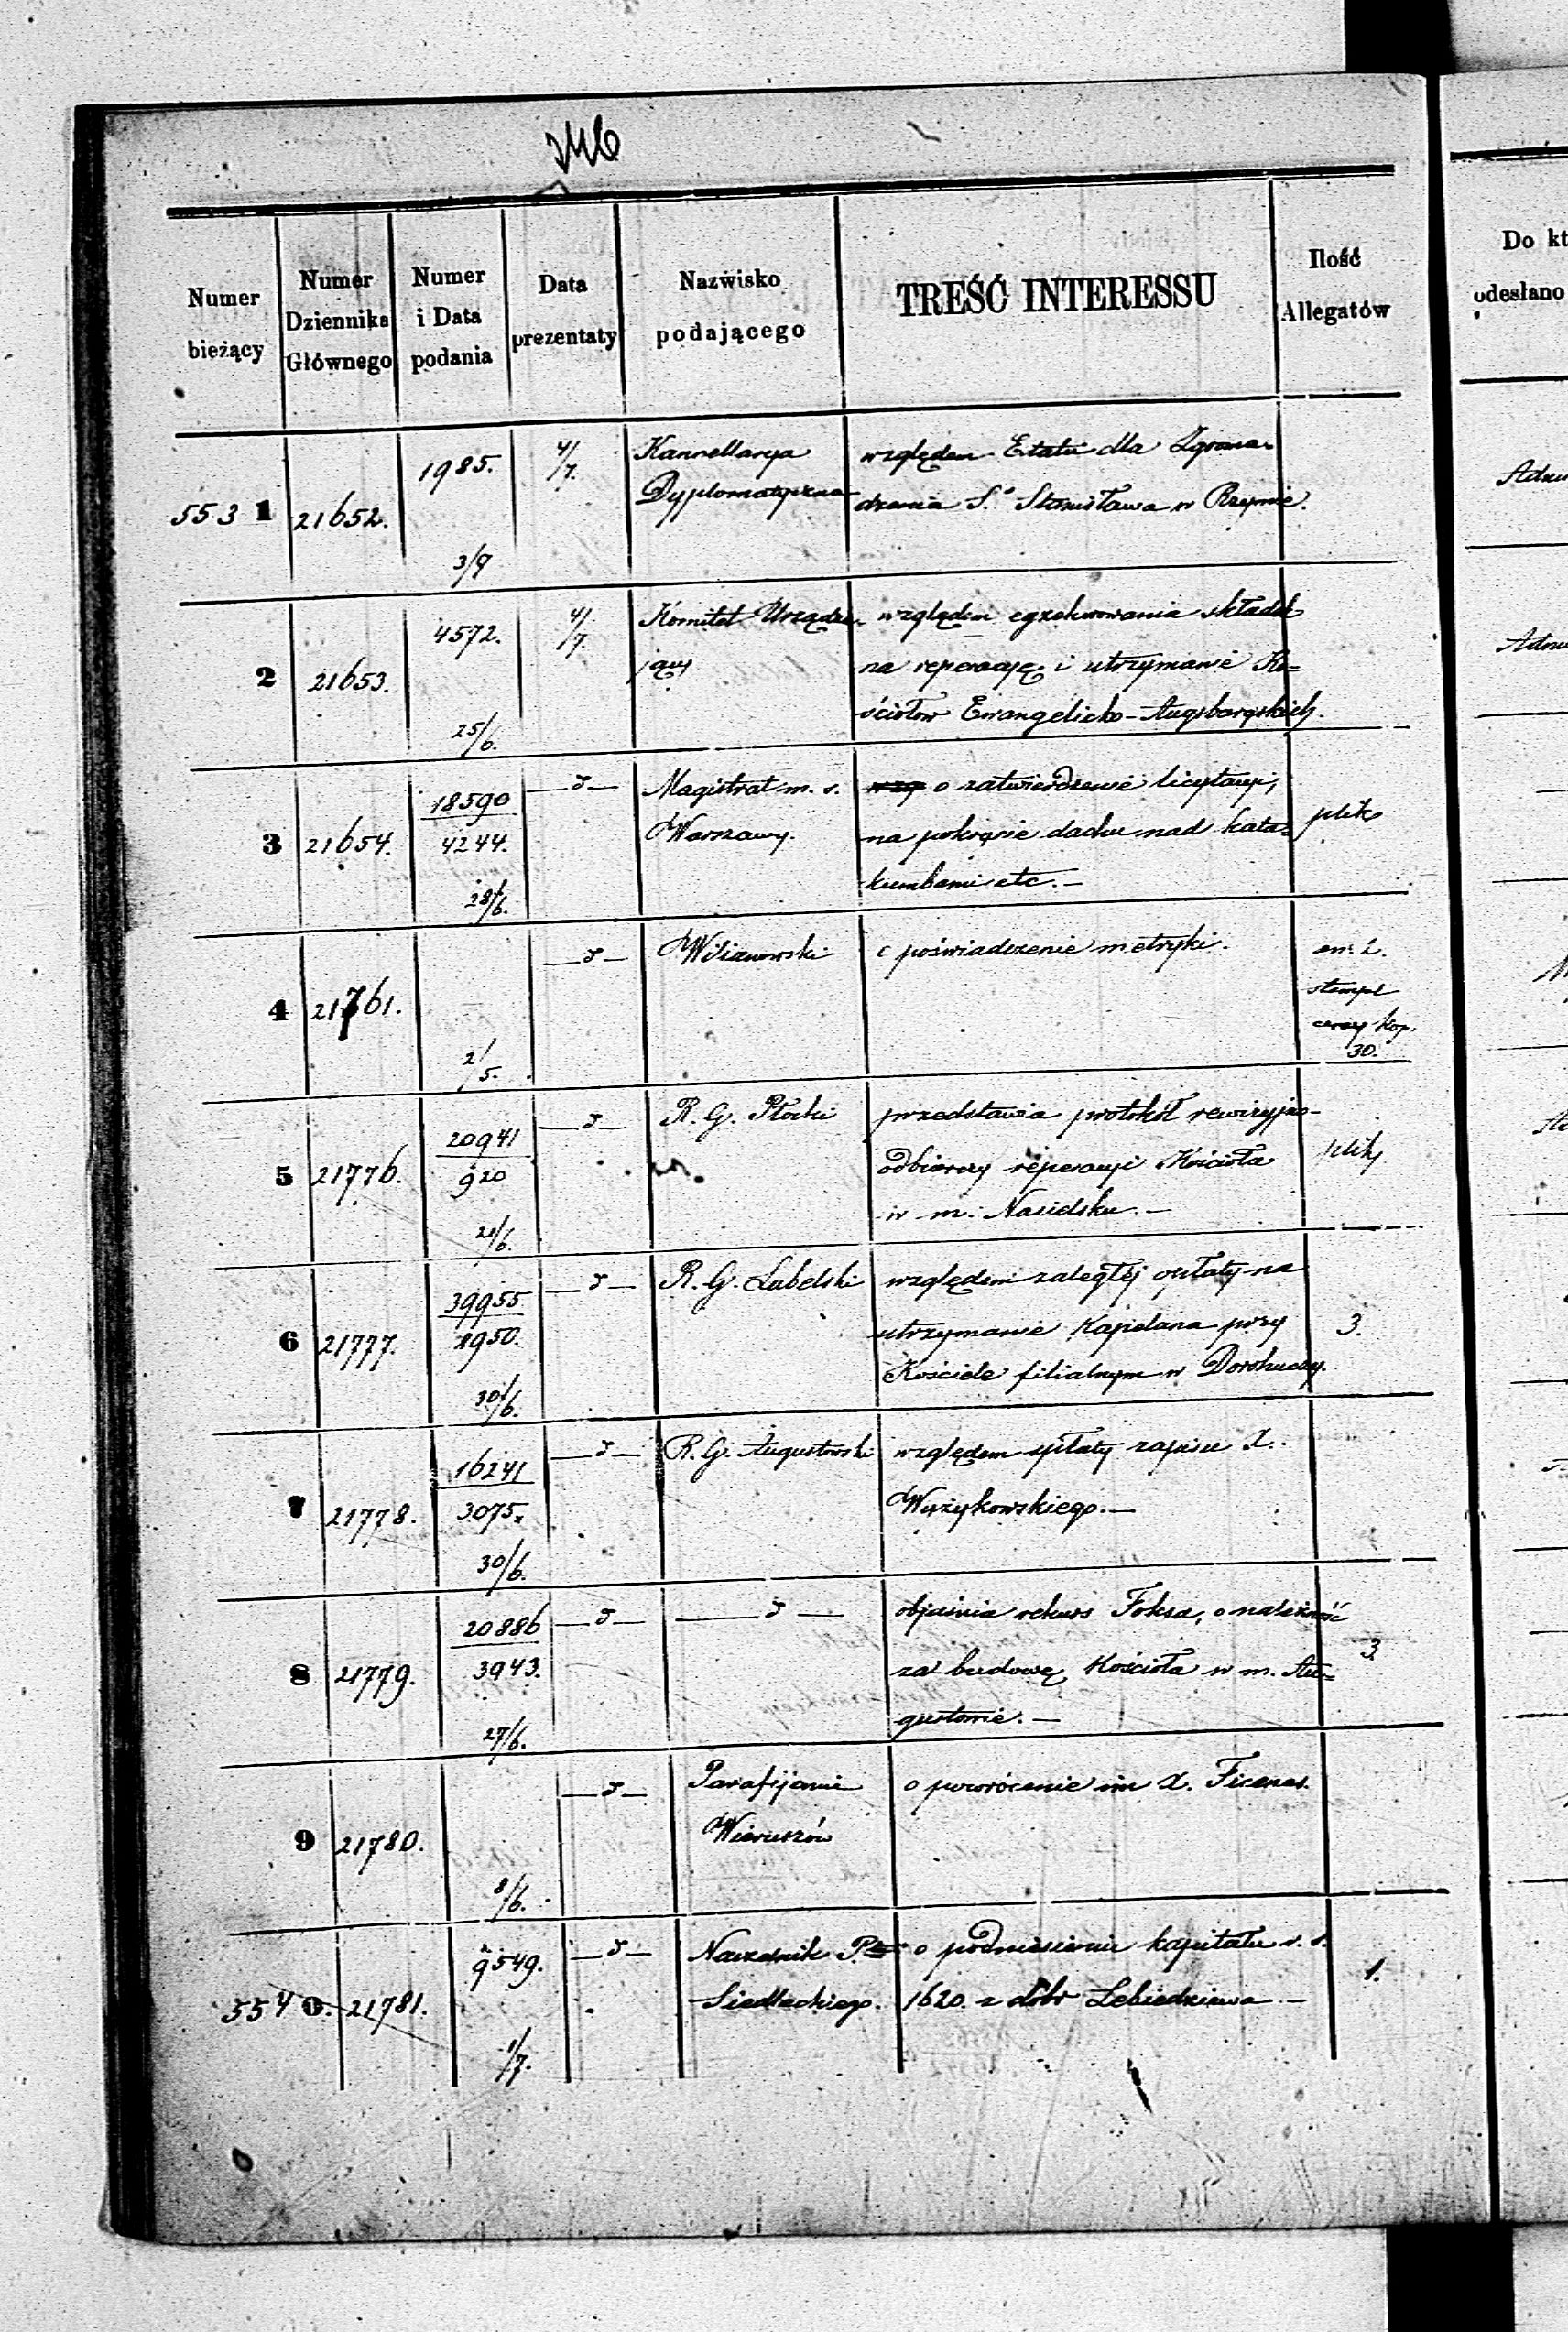 Numer bieżący
Numer Dziennika Głównego
Numer i Data podania
Data prezentaty
Nazwisko podającego
TREŚĆ INTERESSU
Ilość Allegatów
Do kt
odesłano
5531 21652. 1985. 3/7 4/7. Kancellarya względem Etatu dla Zgroma-
Dyplomatyczna dzenia S.º Stanisława w Rzymie.
2 21653. 4572. 25/6. 4/7. Komitet Urządza- względem egzekwowania składek
jący na reperacyę i utrzymanie Ko=
ściołów Ewangelicko-Augsburgskich.
3 21654. 18590 4244. 28/6. —d— Magistrat m. s. o zatwierdzenie licytacyi, plik
Warszawy. na pokrycie dachu nad kata=
kumbami etc. —
4 21761. 2/5. —d— o poświadczenie metryki. an: 2.
stempl
ceny kop.
30.
5 21776. 20941 920 21/6. —d— R. G. Płocki przedstawia protokół rewizyjno- plik
odbiorczy reperacyi Kościoła
w m. Nasielsku. —
6 21777. 39955 8950. 30/6. —d— R. G. Lubelski względem zaległéj opłaty na 3.
utrzymanie Kapelana przy
Kościele filialnym w Dorohuczy.
7 21778. 16241 3075. 30/6. —d— R. G. Augustowski względem spłaty zapisu X.
Wyżykowskiego. —
8 21779. 20886 3943. 27/6. —d— —d— objaśnia rekurs Foksa, o należność 3
za budowę Kościoła w m. Au=
gustowie. —
9 21780. 8/6. —d— Parafijanie o powrócenie im X.
Wieruszów
5540. 21781. 9549. 1/7. —d— Naczelnik P. o podniesienie kapitału r. s. 1.
Siedleckiego. 1620. z dóbr Lebiedziewa —